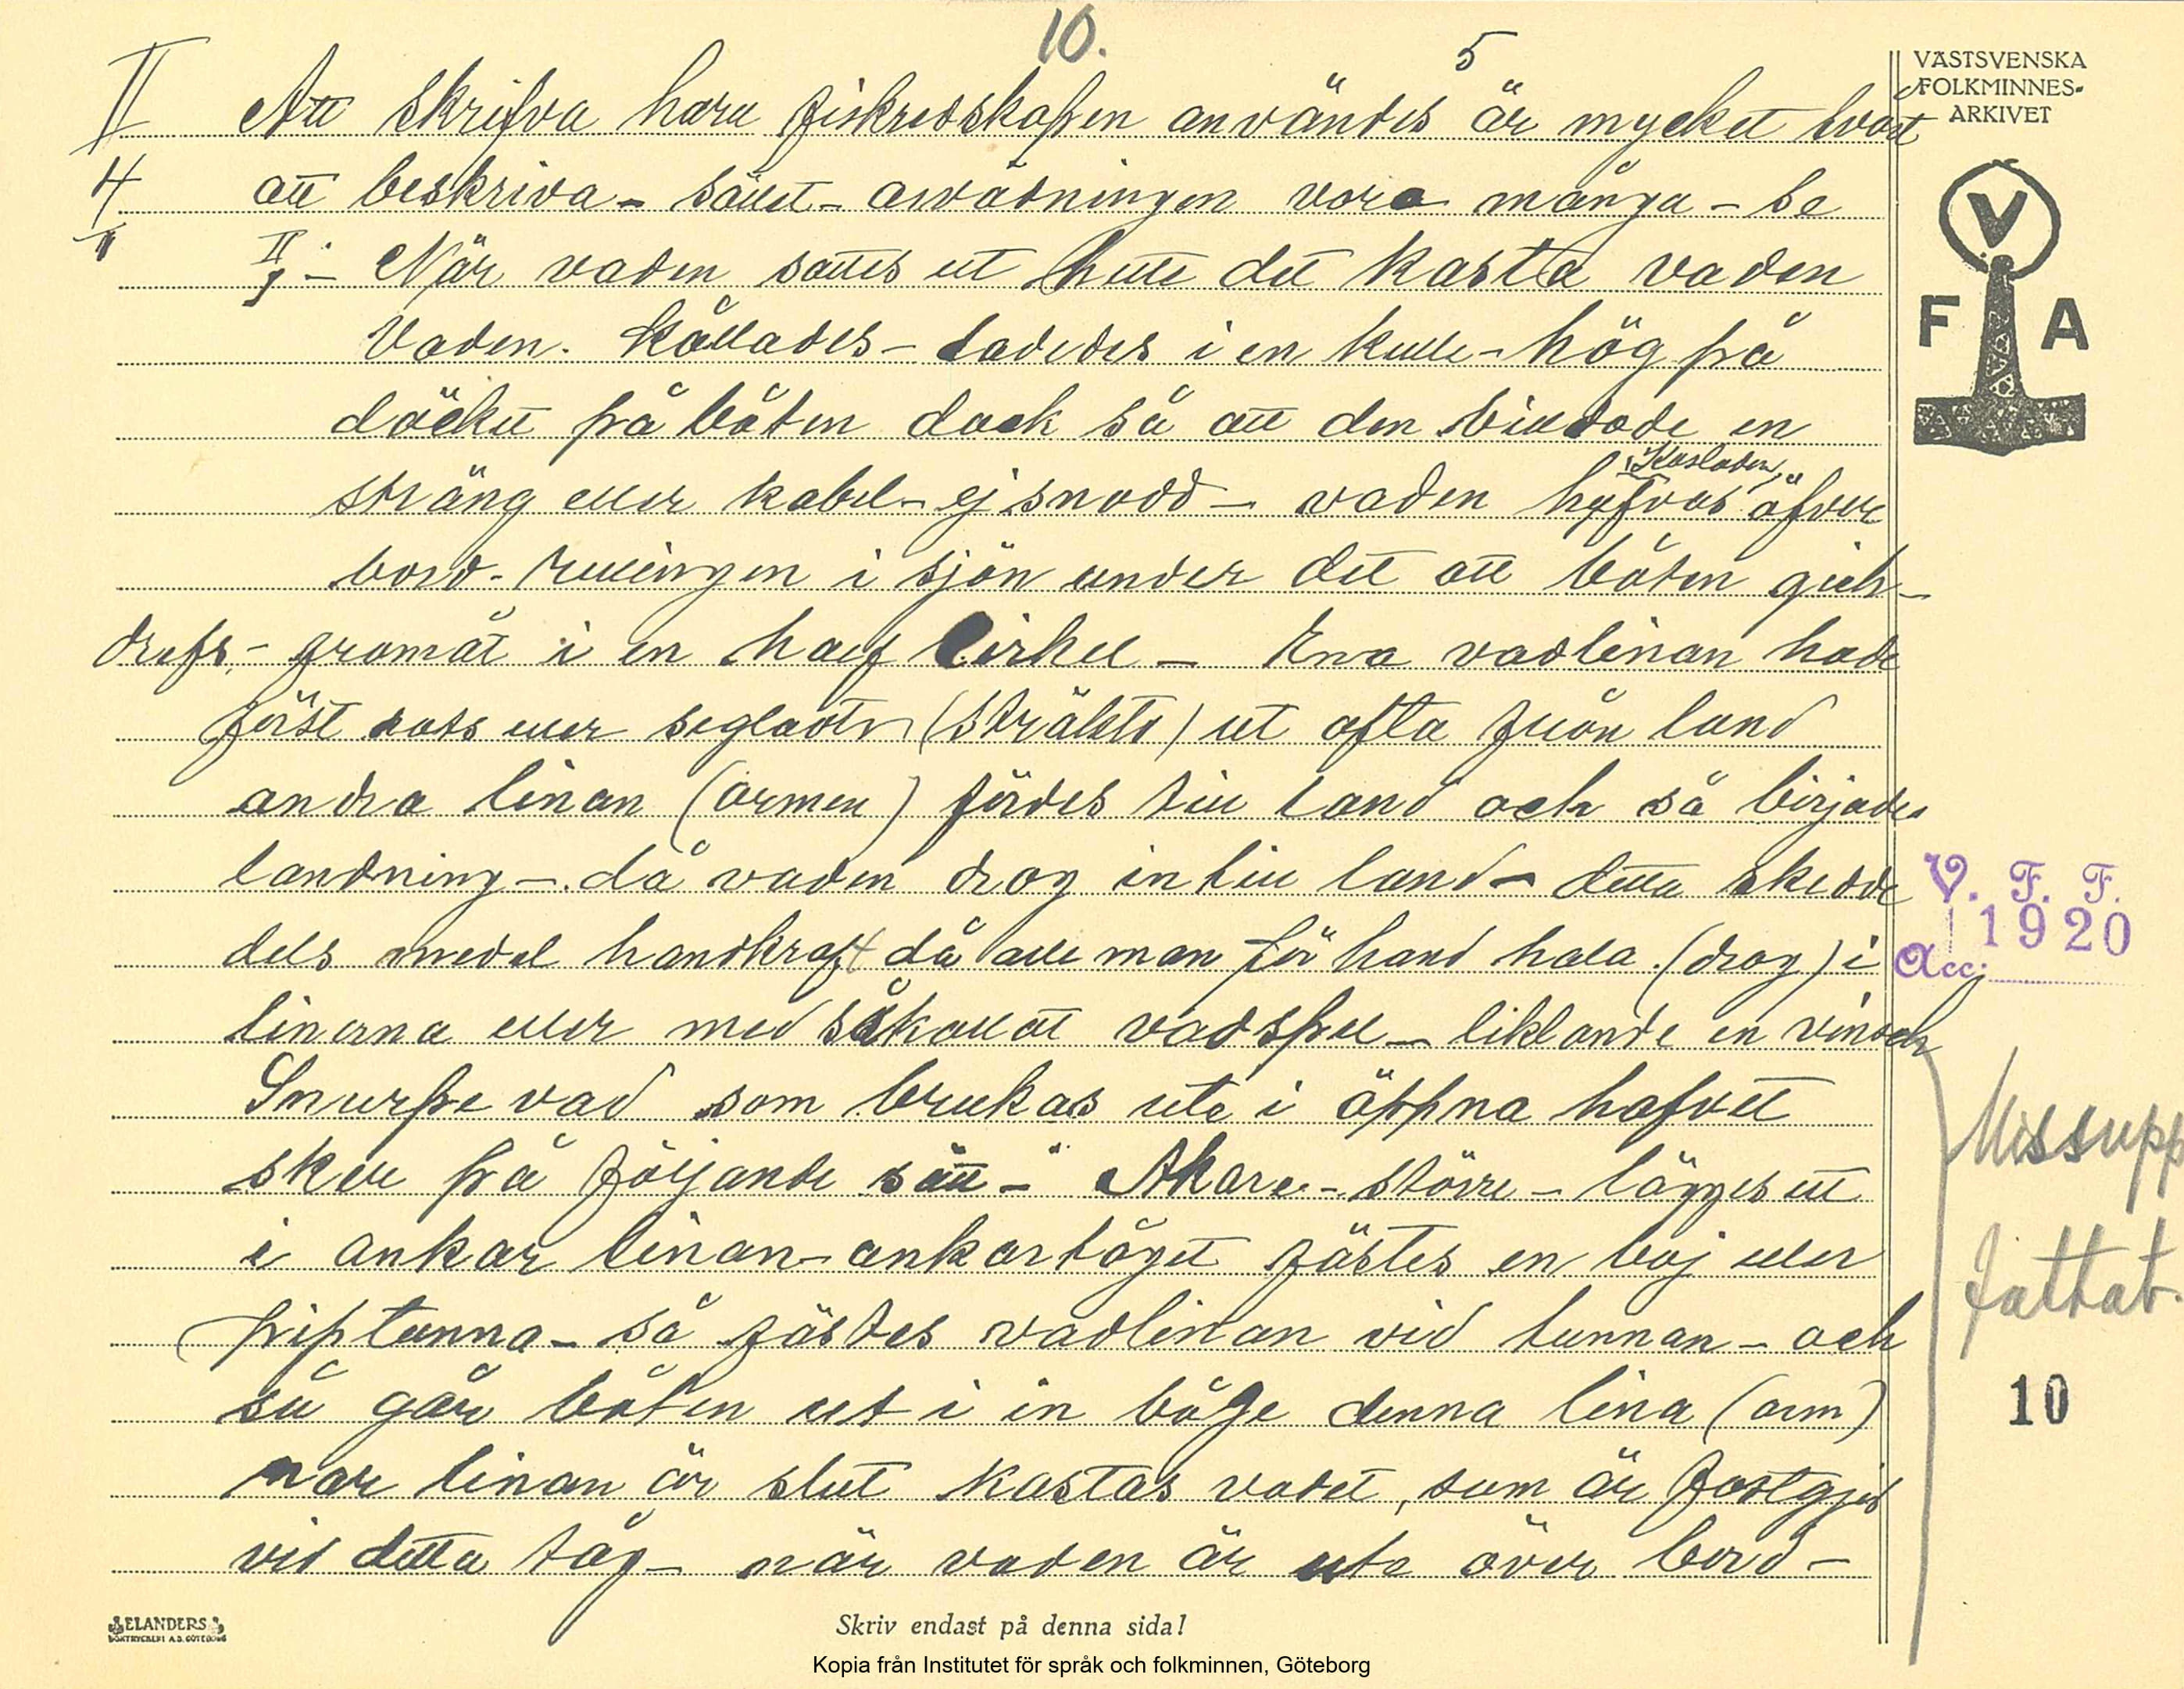 10.
5
VÄSTSVENSKA
FOLKMINNES-
ARKIVET
II Att skrifva huru fiskredskapen användes är mycket svårt
4 att beskriva - sättet - använingen vora många - se
II - När vaden sattes ut hette det kasta vaden
Vaden. kållades - ladedes i en kulle - hög på
däcket på båten dock så att den bildade en
"Kastades"
sträng eller kabel - ej snodd - vaden hyfvas öfver
bord. i sjön under det att båten gick -
drefs - framåt i en half Cirkel - Ena vadlinan hade
först rots eller segladts (sträkts) ut ofta från land
andra linan (armen) fördes till land och så börjades
landning - då vaden drog in till land - detta skedde
dels medel handkraft då alle man för hand hala (drog) i
linorna eller med såkallat vadspel - liklande en vinsch
Snurpe vad som brukas ute i öppna hafvet
sker på följande sätt - Akare - större - lägges ut
i ankar linan - ankartåget fästes en boj eller
priptunna - så fästes vadlinan vid tunnan - och
så går båten ut i in båge denna lina (arm)
nar linan är slut kastas vadet, sum är fastgjod
vid detta tåg - när vaden är ute över bord -
V
F A
V. F. F.
1920
Acc.
Missupp
fattat.
10
ELANDERS
BOKTRYCKERI A.B. GÖTEBORG
Skriv endast på denna sida!
Kopia från Institutet för språk och folkminnen, Göteborg